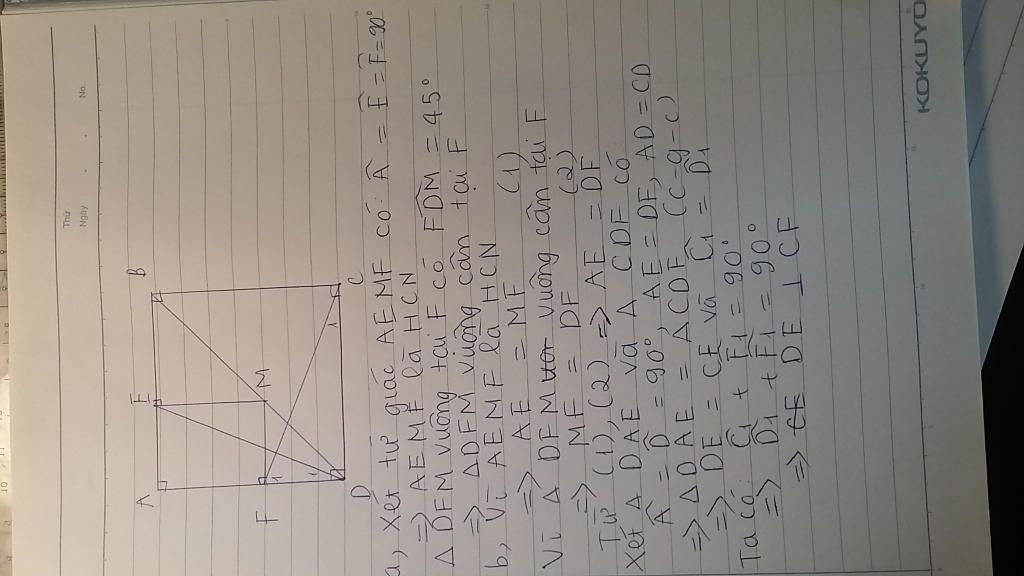 Thứ
Ngày
No.
A
E
B
F
1
M
1
1
D
C
a, Xét tứ giác AEMF có: Â = Ê = F̂ = 90°
=> AEMF là HCN
Δ DFM vuông tại F có F̂DM = 45°
=> ΔDFM vuông cân tại F
b, Vì AEMF là HCN
=> AE = MF (1)
Vì Δ DFM vuông cân tại F
=> MF = DF (2)
Từ (1), (2) => AE = DF
Xét Δ DAE và Δ CDF có
Â = D̂ = 90°, AE = DF, AD = CD
=> ΔDAE = ΔCDF (C-g-C)
=> DE = CF và Ĉ1 = D̂1
Ta có: Ĉ1 + F̂1 = 90°
=> D̂1 + F̂1 = 90°
=> DE ⊥ CF
KOKUYO